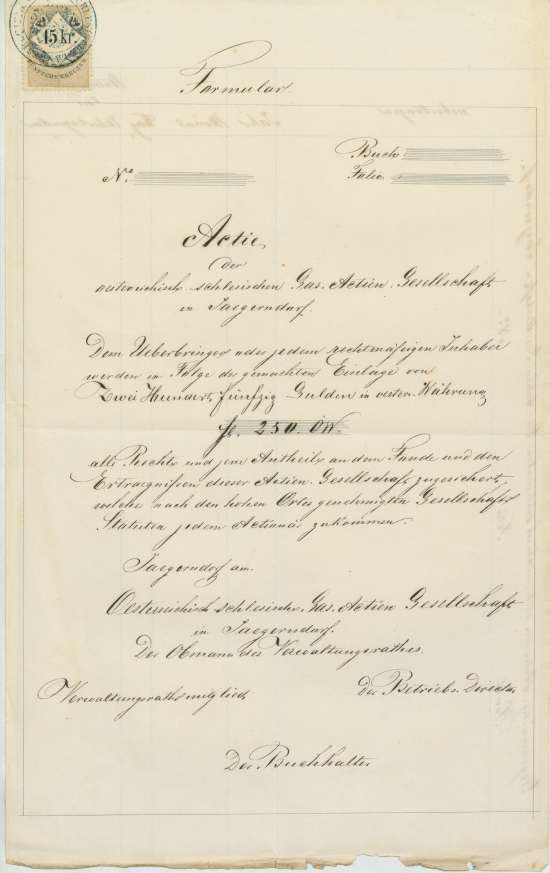 15 kr.
Formular
Buch
N°
Folio
Actie
der
oesterreichisch-schlesischen Gas-Actien-Gesellschaft
in Jaegerndorf.
Dem Ueberbringer oder jedem rechtmäßigen Inhaber
werden in Folge der gemachten Einlage von
Zwei Hundert fünfzig Gulden in oester. Währung
fl. 250. ÖW.
alle Rechte und jene Antheile an dem Funde und den
Ertraegnissen dieser Actien-Gesellschaft zugesichert,
welche nach den hohen Ortes genehmigten Gesellschafts
Statuten jedem Actionär zukommen.
Jaegerndorf am
Oesterreichisch-schlesische Gas-Actien-Gesellschaft
in Jaegerndorf.
Der Obmann des Verwaltungsrathes.
Verwaltungsrathsmitglied
Der Betriebs-Director
Der Buchhalter